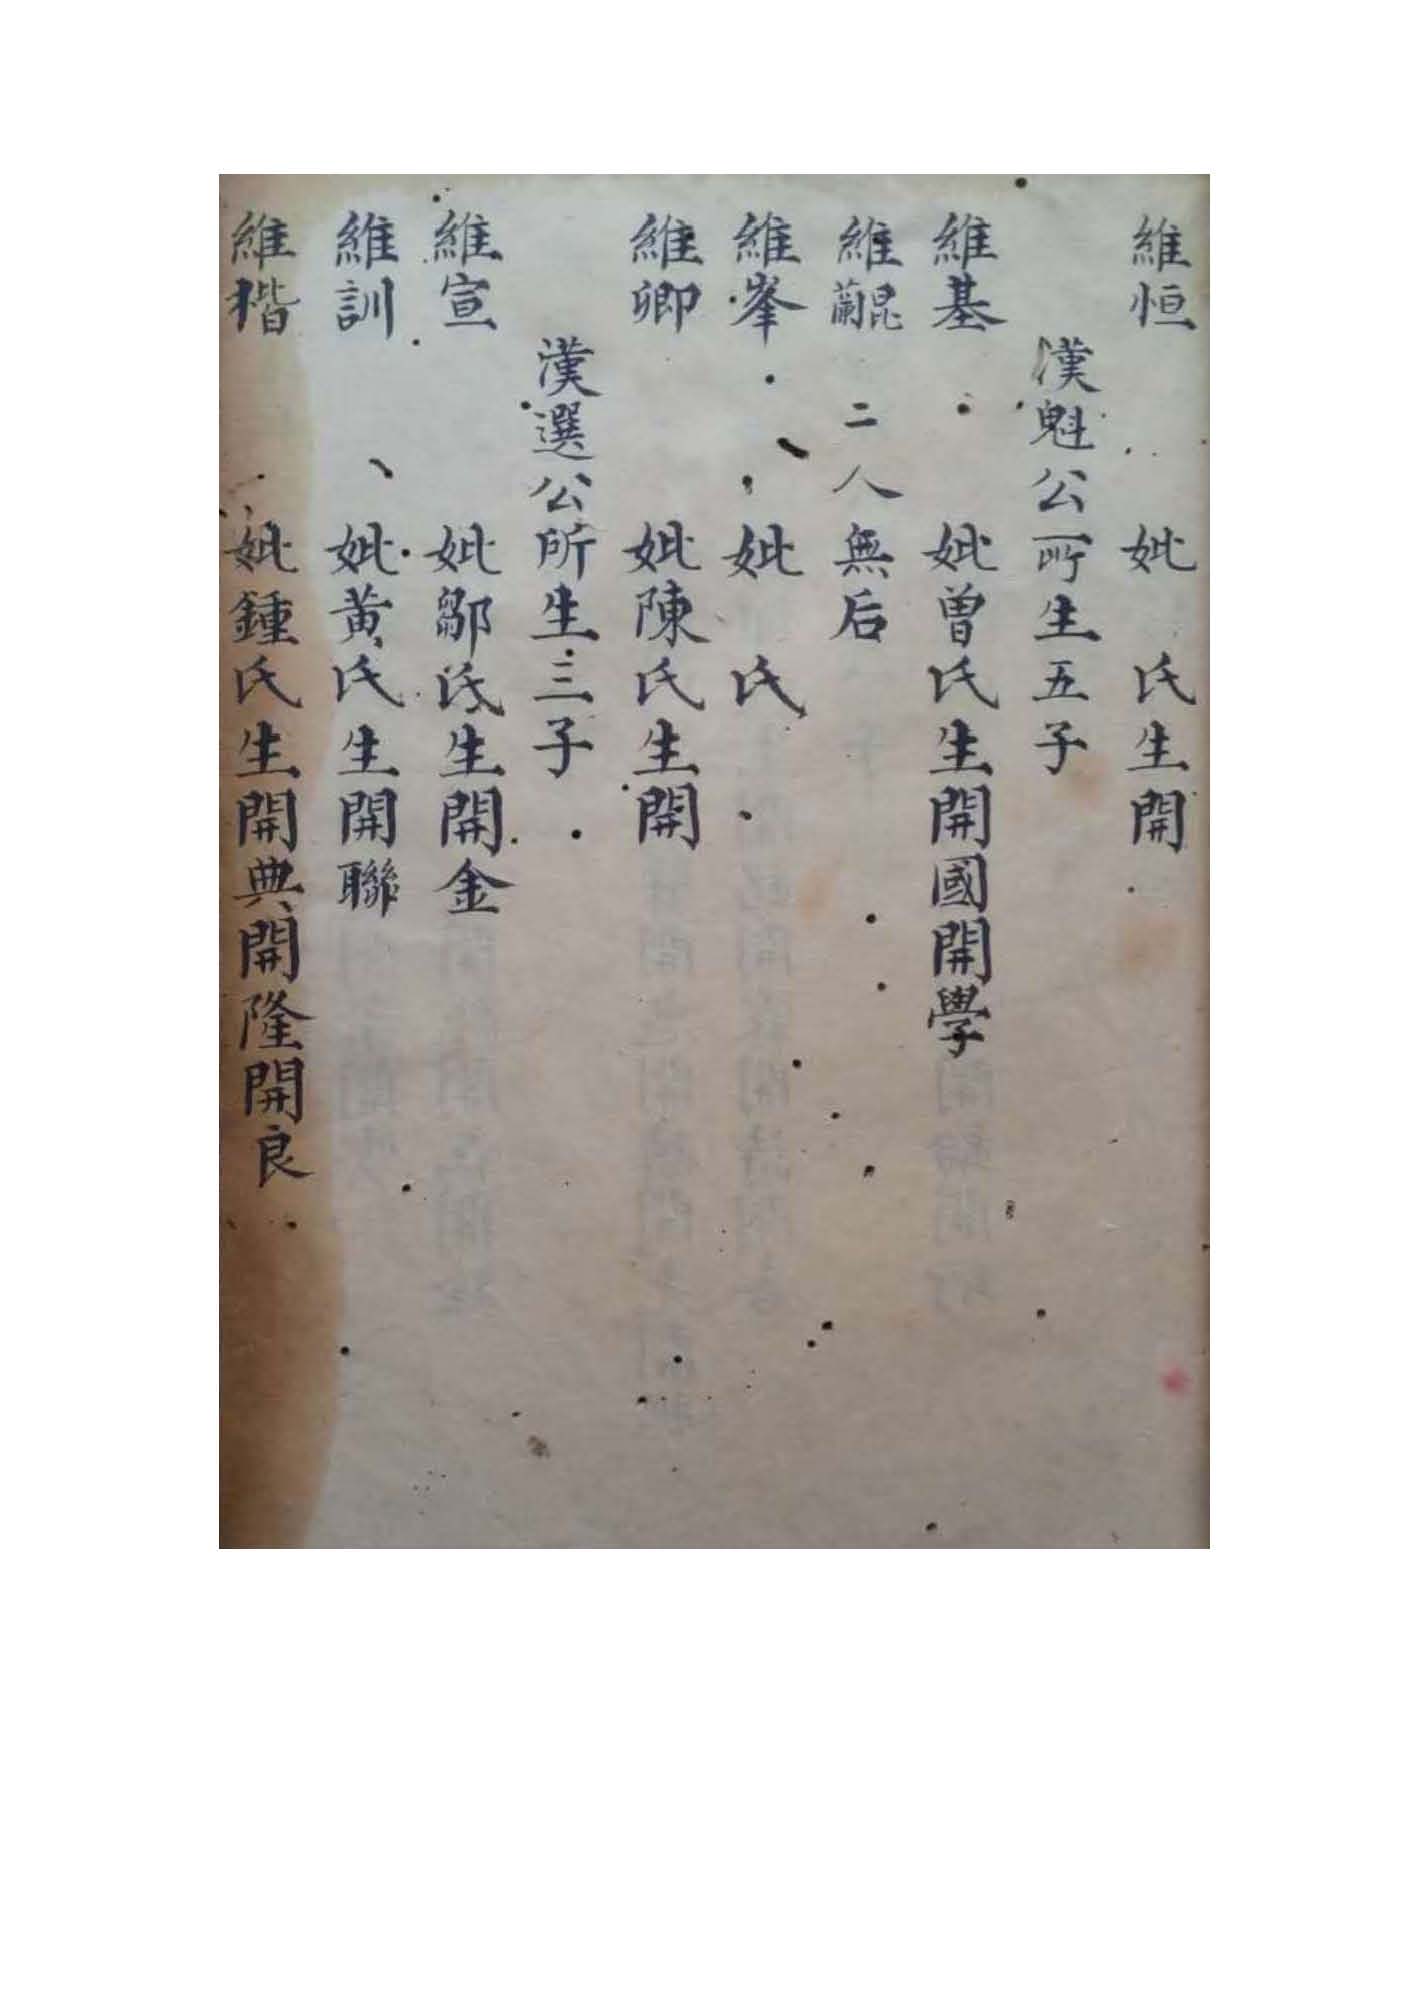 維恒 妣 氏生開
漢魁公所生五子
維基 妣曾氏生開國開學
維崑蘭 二人無后
維峯 妣 氏
維卿 妣陳氏生開
漢選公所生三子
維宣 妣鄒氏生開金
維訓 妣黄氏生開聯
維楷 妣鍾氏生開典開隆開良